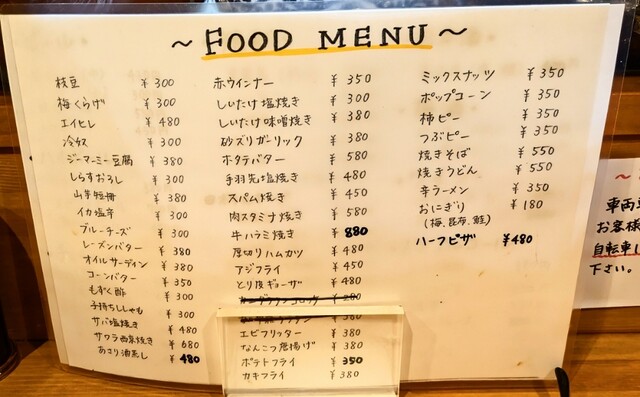 ～ FOOD MENU ～
枝豆 ¥300
梅くらげ ¥300
エイヒレ ¥480
冷奴 ¥300
ジーマーミー豆腐 ¥380
しらすおろし ¥300
山芋短冊 ¥380
イカ塩辛 ¥300
ブルーチーズ ¥300
レーズンバター ¥380
オイルサーディン ¥380
コーンバター ¥350
もずく酢 ¥300
子持ちししゃも ¥350
サバ塩焼き ¥480
サワラ西京焼き ¥680
あさり酒蒸し ¥480
赤ウインナー ¥350
しいたけ塩焼き ¥300
しいたけ味噌焼き ¥380
砂ズリガーリック ¥380
ホタテバター ¥580
手羽先塩焼き ¥480
スパム焼き ¥450
肉スタミナ焼き ¥580
牛ハラミ焼き ¥880
厚切りハムカツ ¥480
アジフライ ¥450
とり皮ギョーザ ¥480
エビフリッター ¥380
なんこつ唐揚げ ¥380
ポテトフライ ¥350
カキフライ ¥380
ミックスナッツ ¥350
ポップコーン ¥350
柿ピー ¥350
つぶピー ¥350
焼きそば ¥550
焼きうどん ¥550
辛ラーメン ¥350
おにぎり ¥180
(梅、昆布、鮭)
ハーフピザ ¥480
車両
お客様
自転車
下さい。